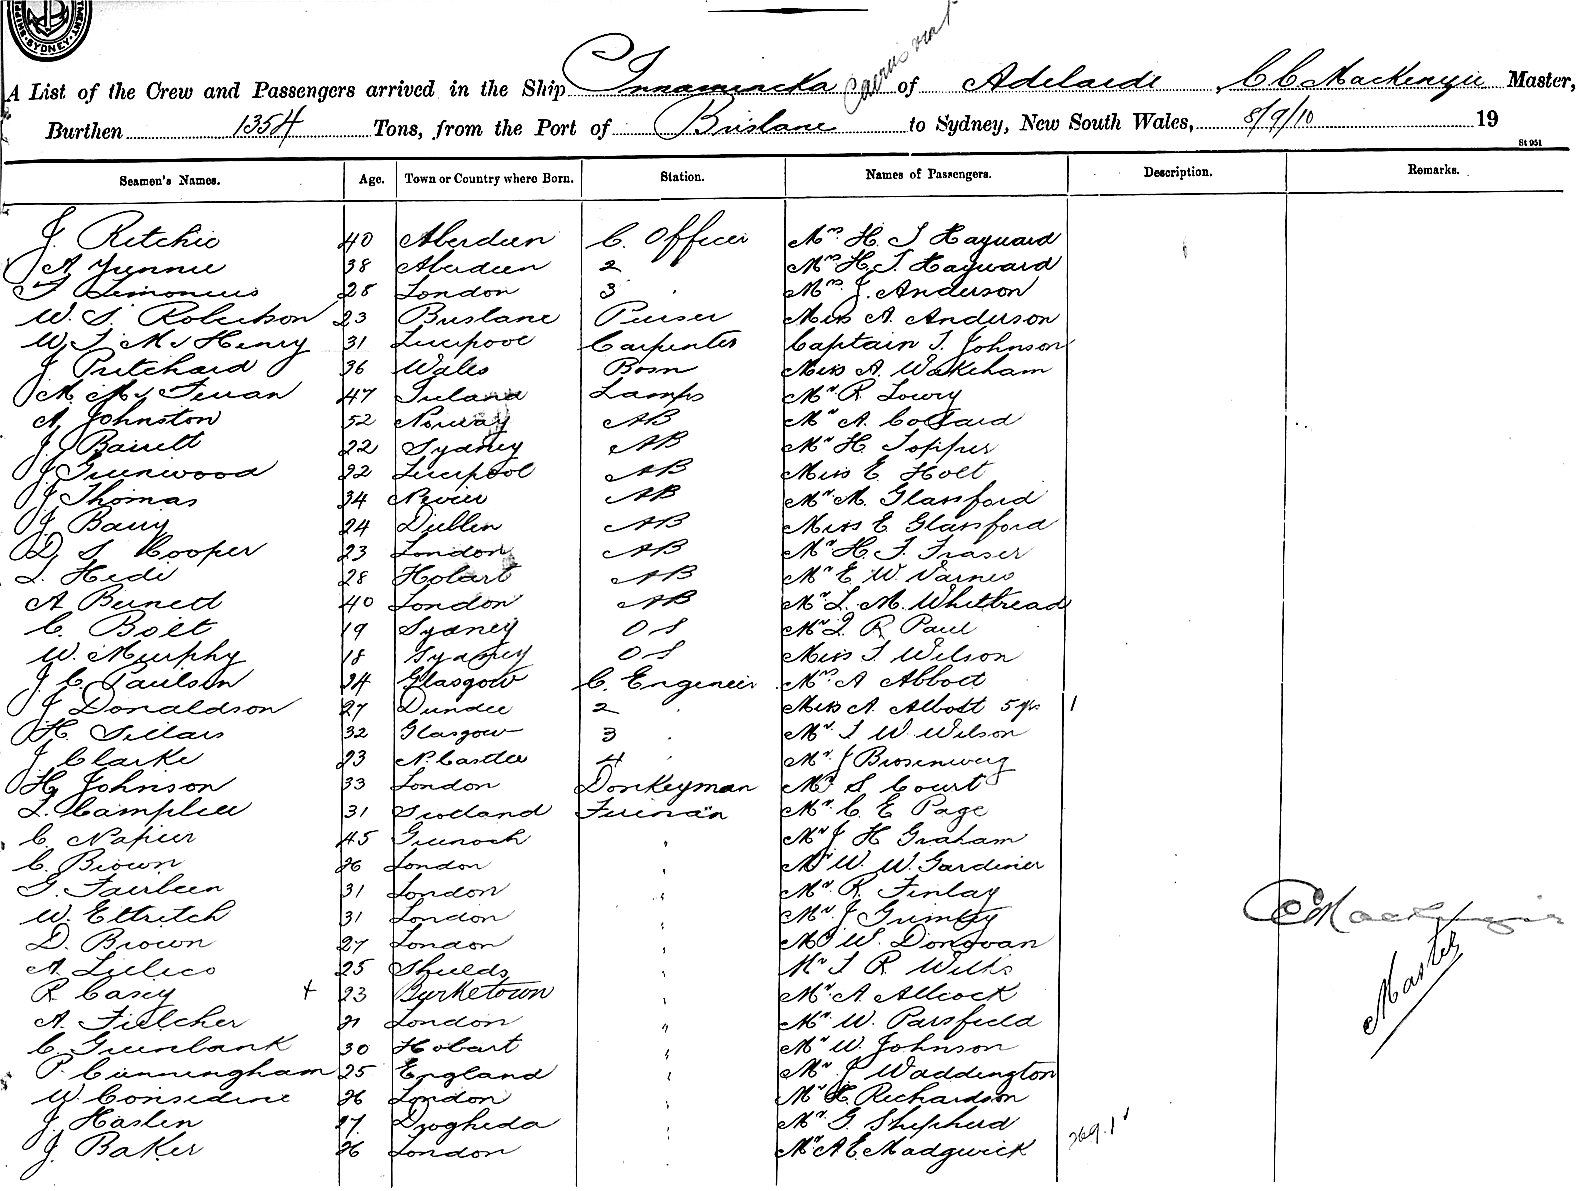 SYDNEY
A List of the Crew and Passengers arrived in the Ship Innamincka of Adelaide, C C Mackenzie Master,
Cairns via
Burthen 1354 Tons, from the Port of Brisbane to Sydney, New South Wales, 8/9/10 19
St 951
Seamen's Names. Age. Town or Country where Born. Station. Names of Passengers. Description. Remarks.
J. Ritchie 40 Aberdeen C. Officer Mr. H. J Hayward
A. 38 Aberdeen 2 Mrs H. J. Hayward
28 London 3 Mrs. J. Anderson
W. S Robertson 23 Brisbane Purser Miss A. Anderson
W. J. McHenry 31 Liverpool Carpenter Captain J. Johnson
J Pritchard 36 Wales Bosn Miss A. Wakeham
M. 47 Ireland Lamps Mr R Lowry
A. Johnston 52 Norway AB Mr A. Collard
J. Barrett 22 Sydney AB Mr H. Topper
J Greenwood 22 Liverpool AB Miss E. Holt
J Thomas 34 AB Mr M. Glassford
J Barry 24 Dublin AB Miss E Glassford
D. S. Cooper 23 London AB Mr H. J. Fraser
28 Hobart AB Mr E. W. Varnes
A Bennett 40 London AB Mr L. M. Whitbread
C. Bolt 19 Sydney OS Mr R Paul
W. Murphy 18 Sydney OS Miss J Wilson
J. C. Paulson 24 Glasgow C. Engineer Mrs. A Abbott
J Donaldson 27 Dundee 2 Miss A. Abbott 5 yrs 1
H. Sillars 32 Glasgow 3 Mr. J W. Wilson
J Clarke 23 N. Castle 4 Mr. J
H. Johnson 33 London Donkeyman Mr S Court
Campbell 31 Scotland Fireman Mr. C. E Page
C. Napier 45 Greenock " Mr J H Graham
C. Brown 26 London " Mr W. W. Gardiner
G. Fairbeen 31 London " Mr. R. Finlay
W. Ettritch 31 London " Mr. J
D. Brown 27 London " Mr W. Donovan
A. 25 Shields " Mr J R Wilks
R Casey + 23 Burketown " Mr. A Allcock
A. Fulcher 21 London " Mr. W. Parsfield
C. Greenbank 30 Hobart " Mr W. Johnson
P. Cunningham 25 England " Mr. J Waddington
W Considine 26 London " Mr H. Richardson
J. Haslen 27. Drogheda " Mr. G. Shepherd
J. Baker 26 London " Mr A E Madgwick
CC Mackenzie
Master